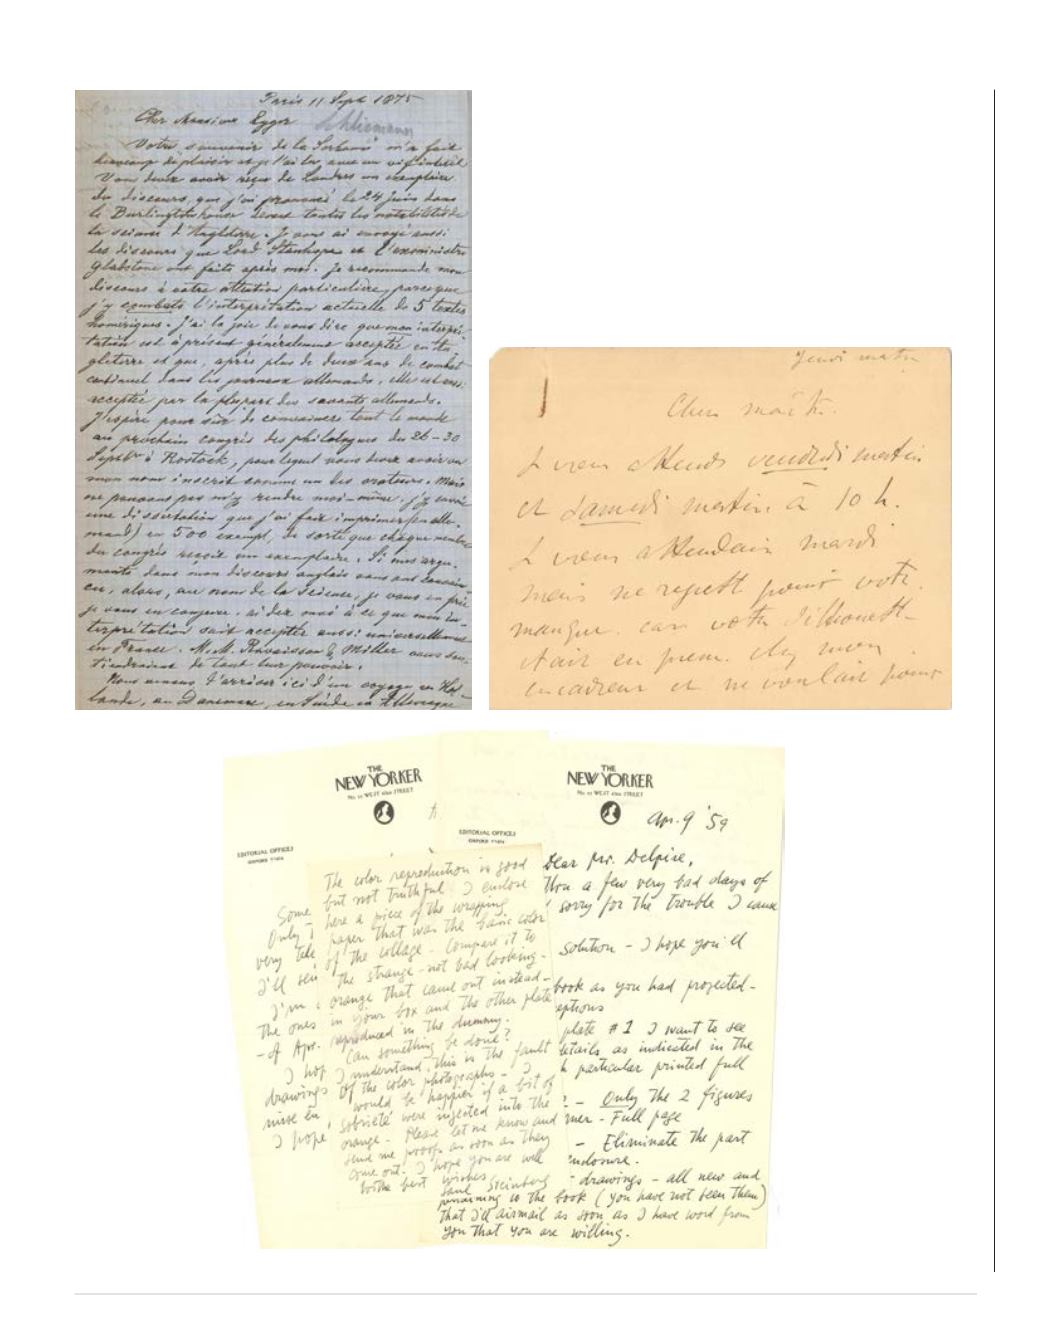 Paris 11 Sept 1875
Cher Monsieur Egger
Schliemann
Votre souvenir de la Sorbonne m'a fait
beaucoup de plaisir et je l'ai lu avec un vif intérêt
Vous devez avoir reçu de Londres un exemplaire
du discours, que j'ai prononcé le 24 juin dans
le Burlingtonhouse devant toutes les notabilités de
la science d'Angleterre. Je vous ai envoyé aussi
les discours que Lord Stanhope et l'exministre
Gladstone ont faits après moi. Je recommande mon
discours à votre attention particulière, parceque
j'y combats l'interprétation actuelle de 5 textes
homériques. J'ai la joie de vous dire que mon interpré-
tation est à présent généralement acceptée en An
gleterre et que, après plus de deux ans de combat
continuel dans les journaux allemands, elle est aussi
acceptée par la plupart des savants allemands.
J'espère pour sûr de convaincre tout le monde
au prochain congrès des philologues du 26-30
Septbr à Rostock, pour lequel vous devez avoir vu
mon nom inscrit comme un des orateurs. Mais
ne pouvant pas m'y rendre moi-même, j'y envoie
une dissertation que j'ai fait imprimer (en alle-
mand) en 500 exempl, de sorte que chaque membre
du congrès reçoit un exemplaire. Si mes argu-
ments dans mon discours anglais vous ont convain
cu, alors, au nom de la science, je vous en prie
je vous en conjure, aidez moi à ce que mon in-
terprétation soit acceptée aussi universellement
en France. M.M. Ravaisson & Miller vous sou-
tiendraient de tout leur pouvoir.
Nous venons d'arriver ici d'un voyage en Hol-
lande, au Danemarc, en Suède en Allemagne
Jeudi matin
Cher maître.
Je vous attends vendredi matin
et Samedi matin à 10 h.
Je vous attendais mardi
mais ne regrett point votre
manque. car votre Silhouette
était en mon
encadreur et ne voulait point
THE
NEW YORKER
No. 25 WEST 43RD STREET
EDITORIAL OFFICES
OXFORD
Some
Only
very
I'll
I'm
the ones
-of Apr.
I hop
drawings
I hope
The color reproduction is good
but not truthful. I enclose
here a piece of the wrapping
paper that was the basic color
of the collage - Compare it to
the strange - not bad looking -
orange that came out instead -
in your box and the other plate
reproduced in the dummy.
Can something be done?
I understand, this is the fault
of the color photographs - I
would be happier if a bit of
sobrieté were injected into the
orange - Please let me know and
send me proofs as soon as they
come out. I hope you are well
With best wishes
Saul Steinberg
THE
NEW YORKER
No. 25 WEST 43RD STREET
EDITORIAL OFFICES
OXFORD
Apr. 9 '59
Dear Mr. Delpire,
a few very bad days of
sorry for the trouble I cause
solution - I hope you'll
book as you had projected -
plate #1 I want to see
details as indicated in the
particular printed full
- Only the 2 figures
- Full page
- Eliminate the part
enclosure.
drawings - all new and
pertaining to the book (you have not seen them)
that I'll airmail as soon as I have word from
you that you are willing.